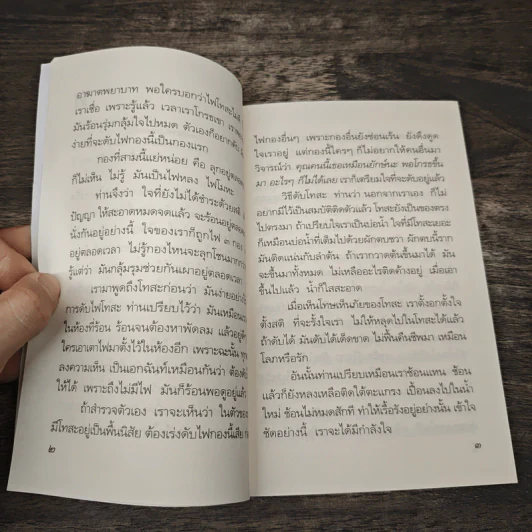 อาฆาตพยาบาท พอใครบอกว่าไฟโทสะไม่ดี
เราเชื่อ เพราะรู้แล้ว เวลาเราโกรธเขา
มันร้อนรุ่มกลุ้มใจไปหมด ตัวเองก็อยากดับ
ง่ายที่จะดับไฟกองนี้เป็นกองแรก
กองที่สามนี้แย่หน่อย คือ ลุกอยู่ตลอด
ก็ไม่เห็น ไม่รู้ มันเป็นไฟหลง ไฟโมหะ
ท่านจึงว่า ใจที่ยังไม่ได้ชำระด้วยสติ
ปัญญา ให้สะอาดหมดจดแล้ว จะร้อนอยู่ตลอด
นั่งกันอยู่อย่างนี้ ใจของเราก็ถูกไฟ ๓ กอง
อยู่ตลอดเวลา ไม่รู้กองไหนจะลุกโชนมา
รู้แต่ว่า มันกลุ้มรุมช่วยกันเผาอยู่ตลอดเวลา
เรามาพูดถึงโทสะก่อนว่า มันง่ายอย่างไร
การดับไฟโทสะ ท่านเปรียบไว้ว่า มันเหมือน
ในห้องที่ร้อน ร้อนจนต้องหาพัดลม แล้วอยู่ดีๆ
ใครเอาเตาไฟมาตั้งไว้ในห้องอีก เพราะฉะนั้น ทุก
ลงความเห็น เป็นเอกฉันท์เหมือนกันว่า ต้อง
ให้ได้ เพราะถึงไม่มีไฟ มันก็ร้อนพอดูอยู่แล้ว
ถ้าสำรวจตัวเอง เราจะเห็นว่า ในตัวของ
มีโทสะอยู่เป็นพื้นนิสัย ต้องเร่งดับไฟกองนี้เสีย
๒
ไฟกองอื่นๆ เพราะกองอื่นยังซ่อนเร้น ยังดึงดูด
ใจเราอยู่ แต่กองนี้ใครๆ ก็ไม่อยากให้คนอื่นมา
วิจารณ์ว่า คุณคนนี้เธอเหมือนยักษ์นะ พอโกรธขึ้น
มา อะไรๆ ก็ไม่ได้เลย เราก็เตรียมใจที่จะดับอยู่แล้ว
วิธีดับโทสะ ท่านว่า นอกจากเราเอง ก็ไม่
อยากมีไว้เป็นสมบัติติดตัวแล้ว โทสะยังเป็นของตรง
ไปตรงมา ถ้าเปรียบใจเราเป็นบ่อน้ำ ใจที่มีโทสะเยอะ
ก็เหมือนบ่อน้ำที่เต็มไปด้วยผักตบชวา ผักตบนี้ราก
มันติดแน่นกับลำต้น ถ้าเรากวาดต้นขึ้นมาได้ มัน
จะขึ้นมาทั้งหมด ไม่เหลืออะไรติดค้างอยู่ เมื่อเอา
ขึ้นไปแล้ว น้ำก็ใสสะอาด
เมื่อเห็นโทษเห็นภัยของโทสะ เราตั้งอกตั้งใจ
ตั้งสติ ที่จะรั้งใจเรา ไม่ให้หลุดไปในโทสะได้แล้ว
ถ้าดับได้ มันดับได้เด็ดขาด ไม่ฟื้นคืนชีพมา เหมือน
โลภหรือรัก
อันนั้นท่านเปรียบเหมือนเราช้อนแหน ช้อน
แล้วก็ยังหลงเหลือติดใต้ตะแกรง เปื้อนลงไปในน้ำ
ใหม่ ช้อนไม่หมดสักที ทำให้เรื้อรังอยู่อย่างนั้น เข้าใจ
ชัดอย่างนี้ เราจะได้มีกำลังใจ
๓